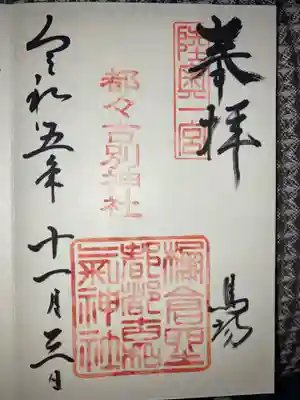 奉拝
陸奥一宮
馬場
都々古別神社
棚倉
都都古和
氣神社
令和五年
十一月三日